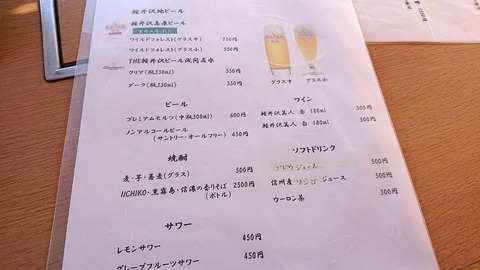 軽井沢地ビール
軽井沢高原ビール
ワイルドフォレスト(グラス中) 750円
ワイルドフォレスト(グラス小) 550円
THE軽井沢ビール浅間名水
クリア(瓶330ml) 550円
ダーク(瓶330ml) 550円
グラス中 グラス小
ビール
プレミアムモルツ(中瓶500ml) 600円
ノンアルコールビール 450円
(サントリー・オールフリー)
焼酎
麦・芋・蕎麦(グラス) 500円
IICHIKO・黒霧島・信濃の香りそば 2500円
(ボトル)
サワー
レモンサワー 450円
グレープフルーツサワー 450円
ワイン
軽井沢美人 赤 180ml 500円
軽井沢美人 白 180ml 500円
ソフトドリンク
ジュース 500円
信州産 りんご ジュース 500円
ウーロン茶 300円